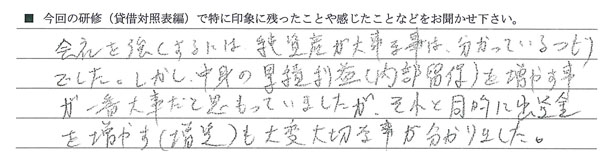 ■ 今回の研修（貸借対照表編）で特に印象に残ったことや感じたことなどをお聞かせ下さい。
会社を強くするには、純資産が大事な事は、分かっているつもり
でした。しかし、中身の累積利益（内部留保）を増やす事
が一番大事だと思もっていましたが、それと同時に出資金
を増やす（増資）も大変大切な事が分かりました。